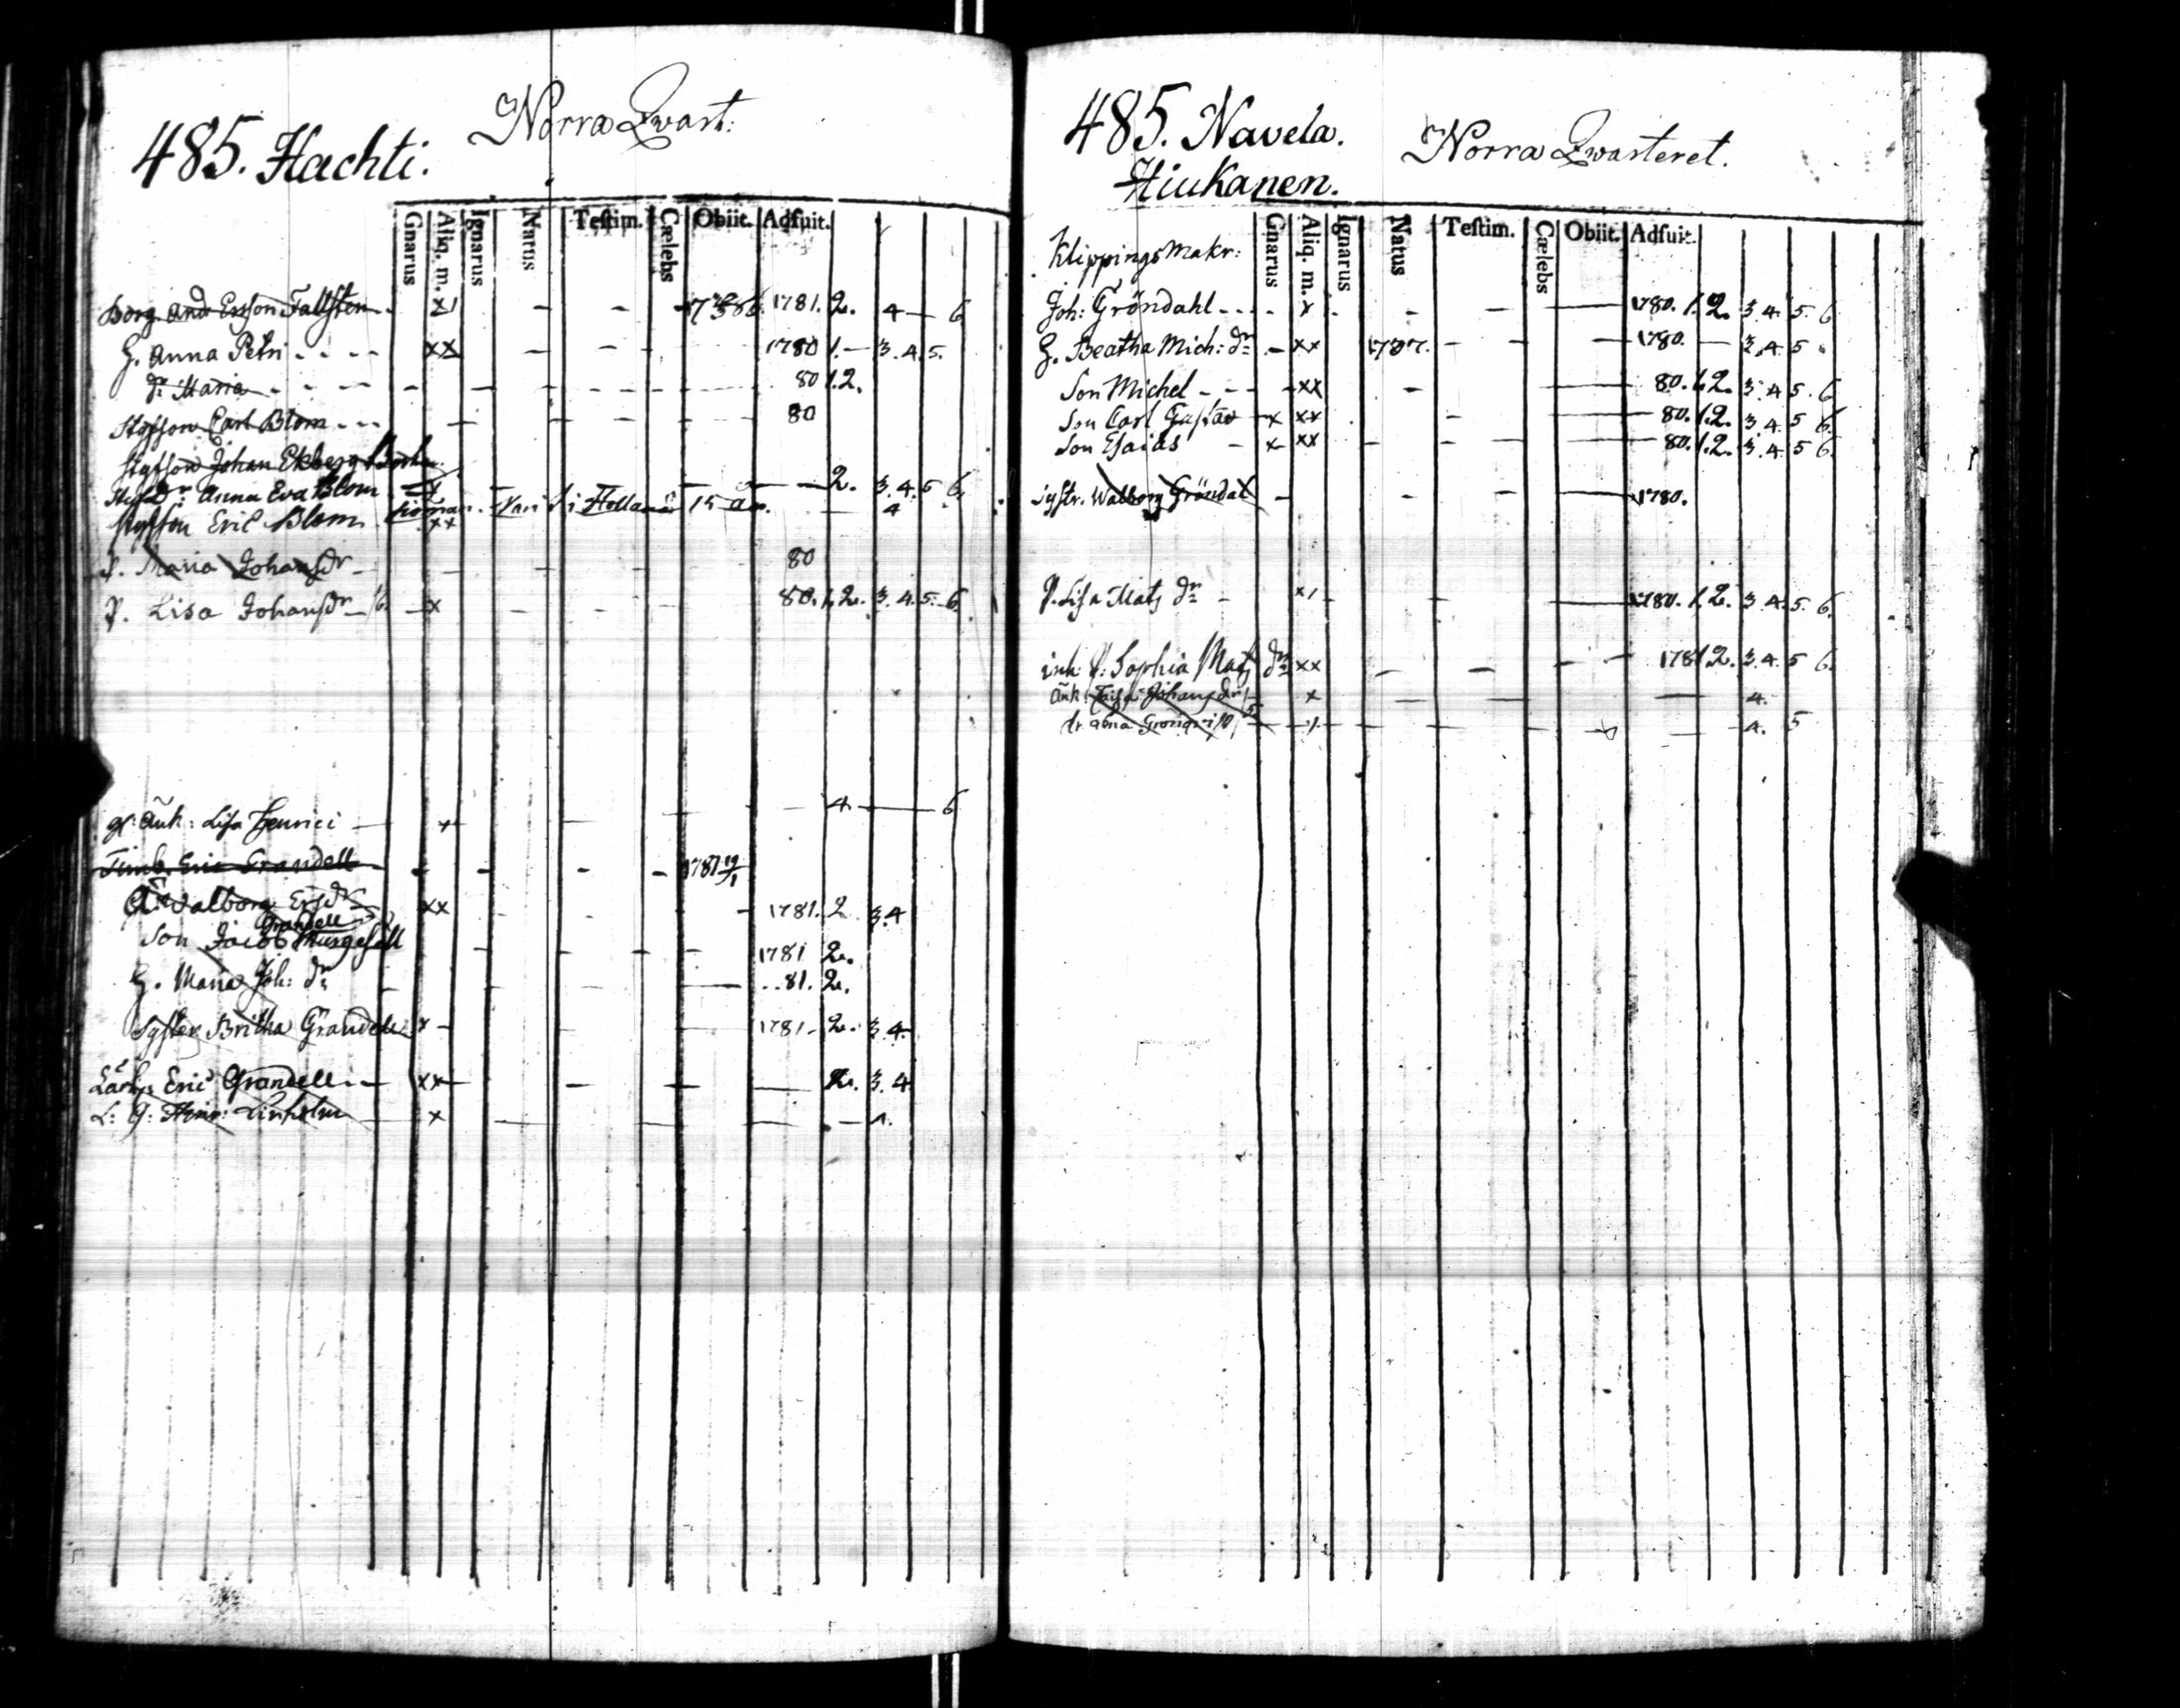 Norra Qwart:
485. Hachti.
Gnarus Aliq. m. Ignarus Natus Testim. Cælebs Obiit. Adfuit.
Borg. And. Ersson Fallsten 1781. 2. 4 — 6
H. Anna Petri - - - - xx — — 1780 1. — 3. 4. 5.
dr Maria - - - - 80 1. 2.
Styfson Carl Blom - - - 80
Styfson Johan Ekberg
Styfdr: Anna Eva Blom — 2. 3. 4. 5 6.
Styfson Eric Blom Sjöman. Vari i Holland 15 år. 4
xx
P. Maria Johansdr — 80
P. Lisa Johansdr — x 80. 1. 2. 3. 4. 5. 6.
gl. änk: Lisa Henrici — x — 4 — 6
Timb. Eric Grandell 1781 19/1
Valborg Ersdr xx 1781. 2 3. 4
Grandell
Son Jacob Murgesäll 1781 2.
H. Maria Joh: dr 81. 2.
Syster Britha Grandell x — 1781 — 2. 3. 4.
Lärk. Eric Grandell — xx — 2. 3. 4
L: G: Henr: Linholm x
485. Navela.
Hiukanen.
Norra Qwarteret.
Gnarus Aliq. m. Ignarus Natus Testim. Cælebs Obiit. Adfuit.
Klippings Makr:
Joh: Gröndahl - - - - x 1780. 1. 2. 3. 4. 5. 6
H. Beatha Mich: dr — xx 1780. — 3. 4. 5
Son Michel - - - xx — 80. 1. 2. 3. 4 5. 6
Son Carl Gustav x xx — 80. 1. 2. 3. 4. 5 6.
Son Esaias — x xx — 80. 1. 2. 3. 4. 5 6.
Systr. Walborg Gröndal — 1780.
P. Lisa Mats dr — 1780. 1. 2. 3. 4. 5. 6.
inh: P: Sophia Mats dr xx — 1781 2. 3. 4. 5 6.
Änk: Johansdr x — 4.
dr. — 4. 5